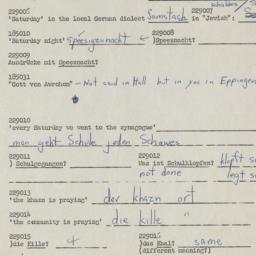 schabbes
229006 229007
'Saturday' in the local German dialect Samstach in "Jewish":
185010 229008
'Saturday night' Speesigeznacht ← )Speesnacht?
229009
Ausdrücke mit Speesnacht?
185031
"Gott von Awrohom" - Not said in Hall but in yes in Eppingen
229010
'every Saturday we went to the synagogue'
man geht Schule jeden Schawes
229011 229012
) Schulegangen? Was ist Schulklopfen? klopft
not done legt
229013
'the khazn is praying' der khazn ort
229014
'the community is praying' die kille "
229015 229016
)die Kille? + )das Khal? same
(different meaning?)